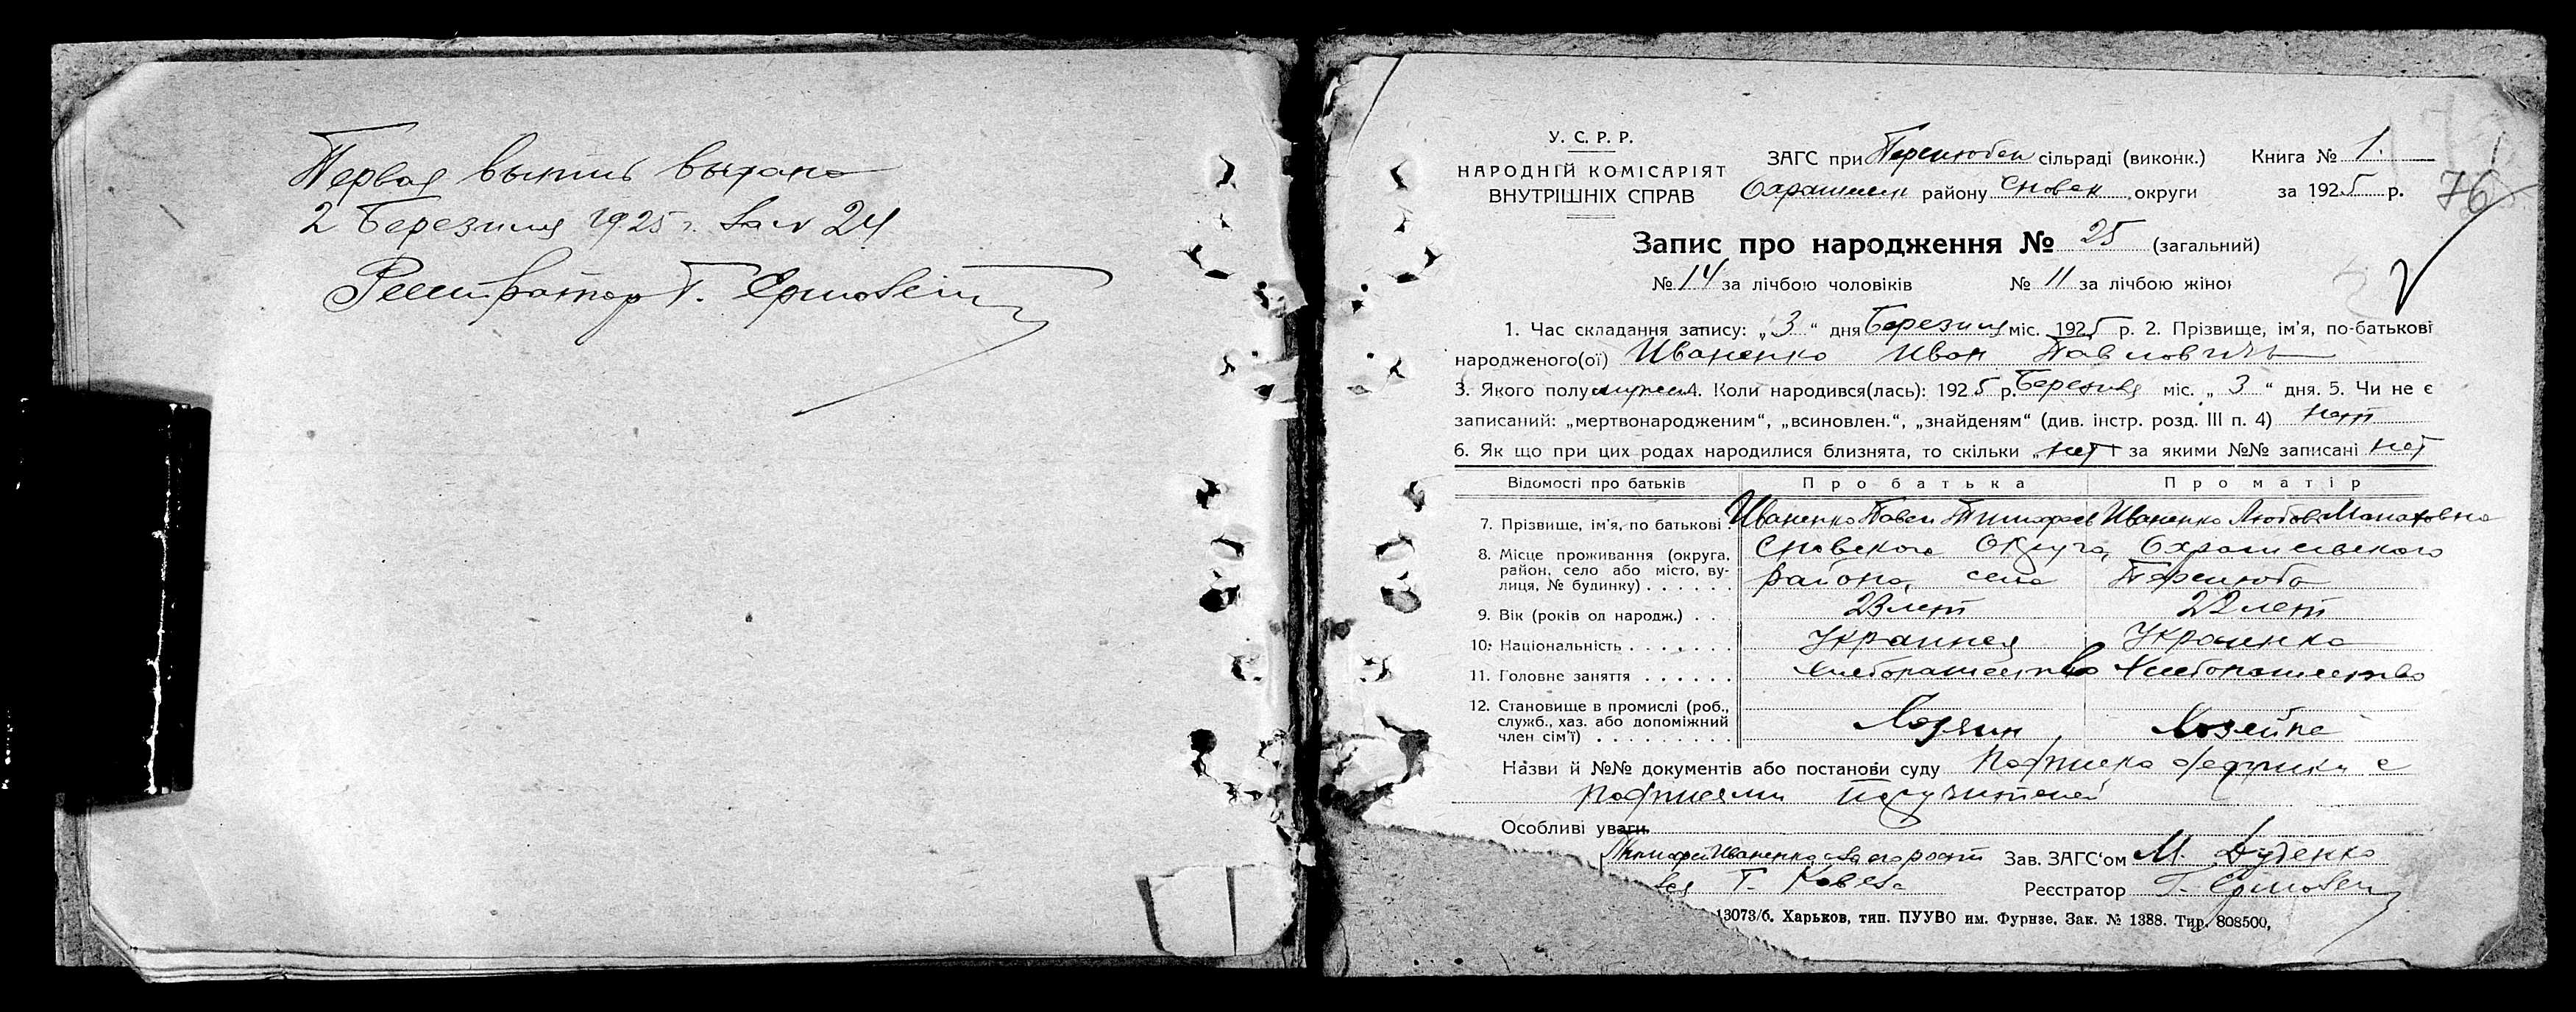 Первая выпись выдана
2 Березиля 1925 г. за № 24
Регистратор Т. Ермоленко
У. С. Р. Р.
НАРОДНІЙ КОМІСАРІЯТ
ВНУТРІШНІХ СПРАВ
ЗАГС при Перелюбск сільраді (виконк.) Книга № 1.
района Сновск округи за 1925 р.
76
Запис про народження № 25 (загальний)
№ 14 за лічбою чоловіків № 11 за лічбою жінок
1. Час складання запису: „3“ дня Березиля міс. 1925 р. 2. Прізвище, ім'я, по-батькові
народженого(ої) Иваненко Иван Павловичъ
3. Якого полу мужск 4. Коли народився(лась): 1925 р. Березиля міс. „3“ дня. 5. Чи не є
записаний: „мертвонародженим“, „всиновлен.“, „знайденям“ (див. інстр. розд. III п. 4) нет
6. Як що при цих родах народилися близнята, то скільки „нет за якими №№ записані нет
Відомості про батьків Про батька Про матір
7. Прізвище, ім'я, по батькові . Иваненко Павел Тимофеев Иваненко Любовь
8. Місце проживання (округа, район, село або місто, вулиця, № будинку) . . . . . .
Сновского Округа, Охрамиевского
района, села Перелюба
9. Вік (років од народж.) . . 23 лет 22 лет
10. Національність . . . . . . Украинец Украинка
11. Головне заняття . . . . . . Хлебопашество Хлебопашество
12. Становище в промислі (роб., служб., хаз. або допоміжний член сім'ї) . . . . . . . . . Хозяин Хозяйка
Назви й №№ документів або постанови суду с
подписями поручителей
Особливі уваги
Тимофей Иваненко Зав. ЗАГС'ом М. Дуденко
Т. Реєстратор Т. Ермоленко
13073/б. Харьков, тип. ПУУВО им. Фурнзе. Зак. № 1388. Тир. 808500,